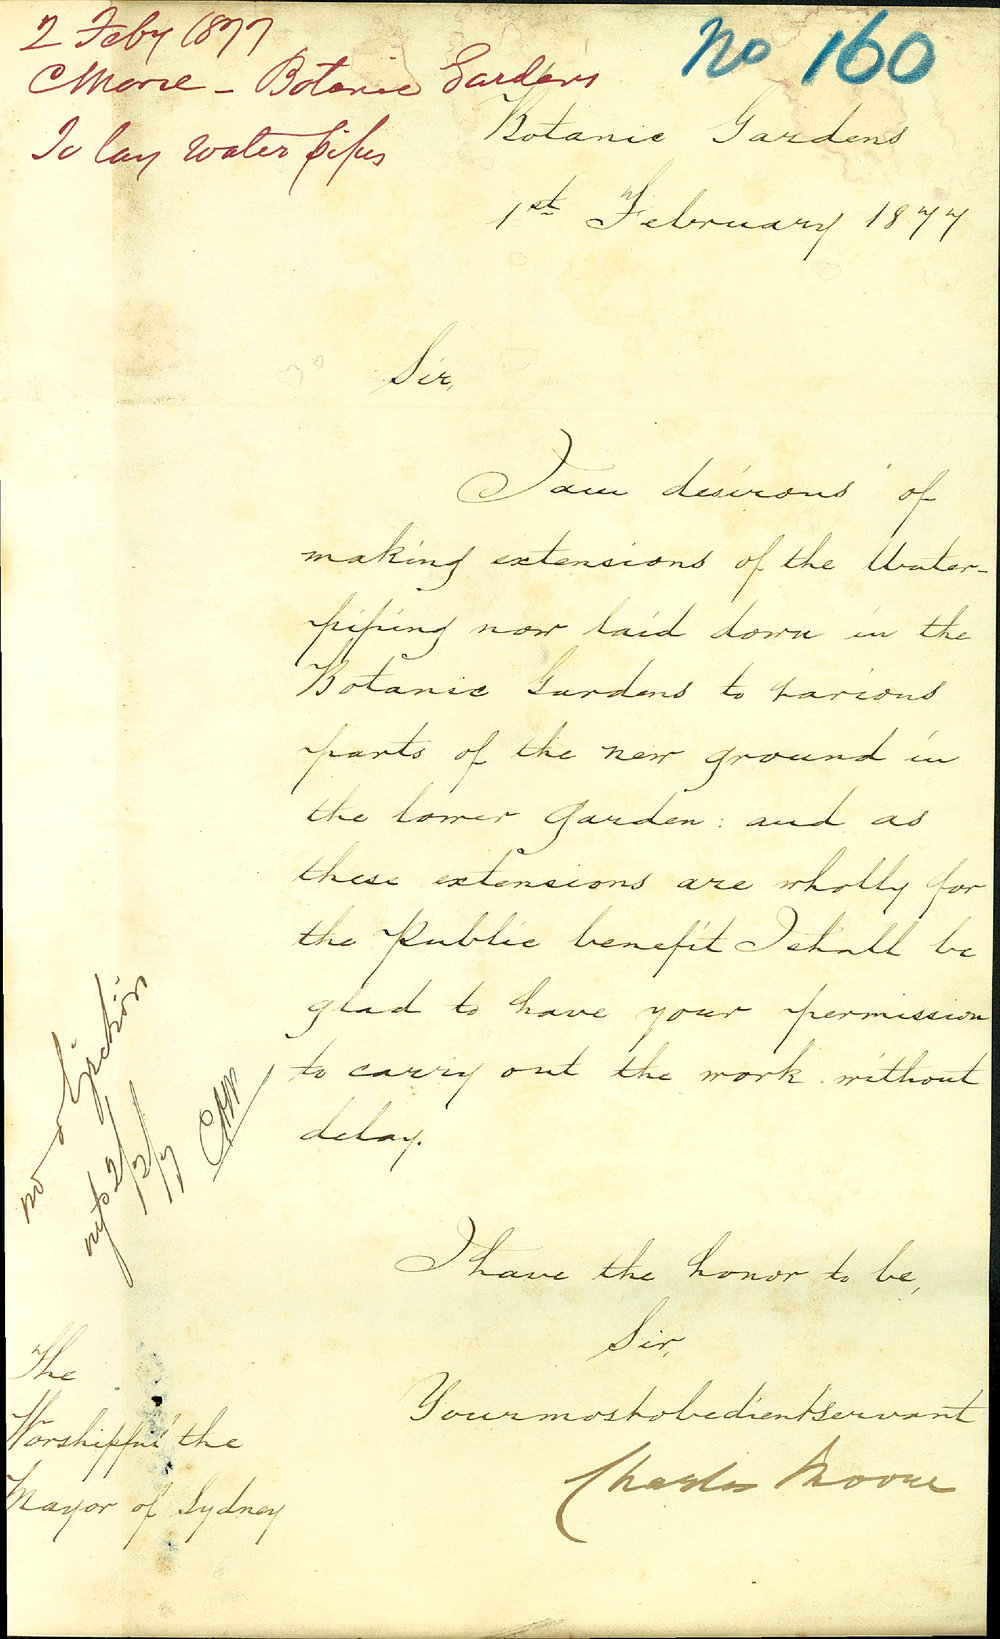 2 Feby 1877
C Moore - Botanic Gardens
To lay water pipes
No 160
Botanic Gardens
1st February 1877
Sir,
I am desirous of
making extensions of the Water-
piping now laid down in the
Botanic Gardens to various
parts of the new ground in
the lower Garden: and as
these extensions are wholly for
the Public benefit I shall be
glad to have your permission
to carry out the work without
delay.
no objection
2/2/77
I have the honor to be,
Sir,
Your most obedient servant
Charles Moore
The
Worshipful the
Mayor of Sydney